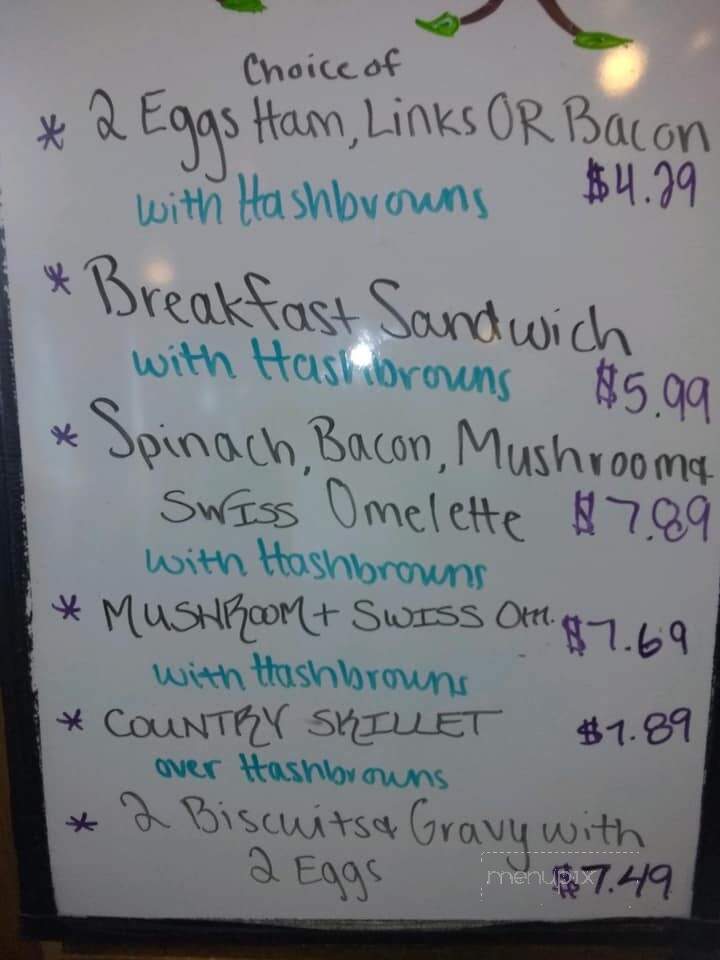 Choice of
* 2 Eggs Ham, Links OR Bacon
with Hashbrowns $4.29
* Breakfast Sandwich
with Hashbrowns $5.99
* Spinach, Bacon, Mushroom &
Swiss Omelette $7.89
with Hashbrowns
* MUSHROOM + SWISS Om. $7.69
with Hashbrowns
* COUNTRY SKILLET $7.89
over Hashbrowns
* 2 Biscuits & Gravy with
2 Eggs $7.49
menupix